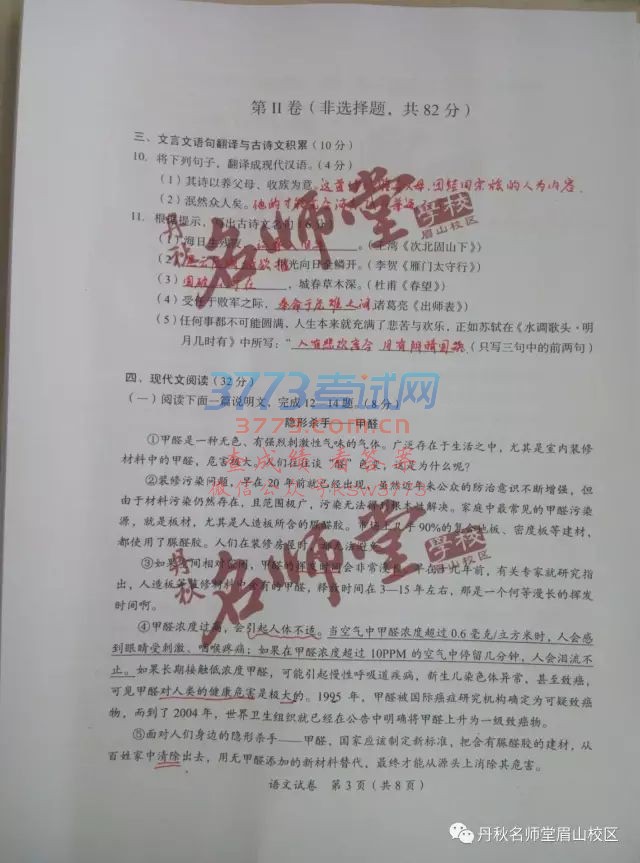 第 II 卷（非选择题，共 82 分）
三、文言文语句翻译与古诗文积累(10 分)
10. 将下列句子，翻译成现代汉语。(4 分)
（1）其诗以养父母、收族为意。这首 母，团结同宗族的人为内容
（2）泯然众人矣。他的才能
11. 根据提示，写出古诗文名句
（1）海日生残夜， 。（王湾《次北固山下》）
（2） 光向日金鳞开。（李贺《雁门太守行》）
（3）国破 在，城春草木深。（杜甫《春望》）
（4）受任于败军之际，奉命于危难之间 诸葛亮《出师表》）
（5）任何事都不可能圆满，人生本来就充满了悲苦与欢乐，正如苏轼在《水调歌头·明
月几时有》中所写：“人有悲欢离合 月有阴晴圆缺（只写三句中的前两句）
四、现代文阅读(32 分)
（一）阅读下面一篇说明文，完成 12—14 题。（8 分）
隐形杀手——甲醛
①甲醛是一种无色、有强烈刺激性气味的气体。广泛存在于生活之中，尤其是室内装修
材料中的甲醛，危害极大，我们在在谈“醛”色变，这是为什么呢？
②装修污染问题，早在 20 年前就已经出现，虽然近年来公众的防治意识不断增强，但
由于材料污染仍然存在，且范围极广，污染无法得到根本性解决。家庭中最常见的甲醛污染
源，就是板材，尤其是人造板所含的脲醛胶。市场上几乎 90%的复合地板、密度板等建材，
都使用了脲醛胶。人们在装修房屋时，都无法避免
③如果时间相对 ，甲醛的挥发时间会非常漫长。早在十几年前，有关专家就研究指
出，人造板等装修材料中含有的甲醛，释放时间在 3—15 年左右，那是一个何等漫长的挥发
时间啊。
④甲醛浓度过高，会引起人体不适。当空气中甲醛浓度超过 0.6 毫克/立方米时，人会感
到眼睛受刺激、咽喉疼痛；如果在甲醛浓度超过 10PPM 的空气中停留几分钟，人会泪流不
止。如果长期接触低浓度甲醛，可能引起慢性呼吸道疾病，新生儿染色体异常，甚至致癌，
可见甲醛对人类的健康危害是极大的。1995 年，甲醛被国际癌症研究机构确定为可疑致癌
物，而到了 2004 年，世界卫生组织就已经在公告中明确将甲醛上升为一级致癌物。
⑤面对人们身边的隐形杀手——甲醛，国家应该制定新标准，把含有脲醛胶的建材，从
百姓家中清除出去，用无甲醛添加的新材料替代，最终才能从源头上消除其危害。
语文试卷 第 3 页（共 8 页）
丹秋 名师堂 学校 眉山校区
3773考试网
3773.com.cn
查成绩 看答案
微信公众号ksw3773
丹秋 名师堂 学校 眉山校区
丹秋名师堂眉山校区